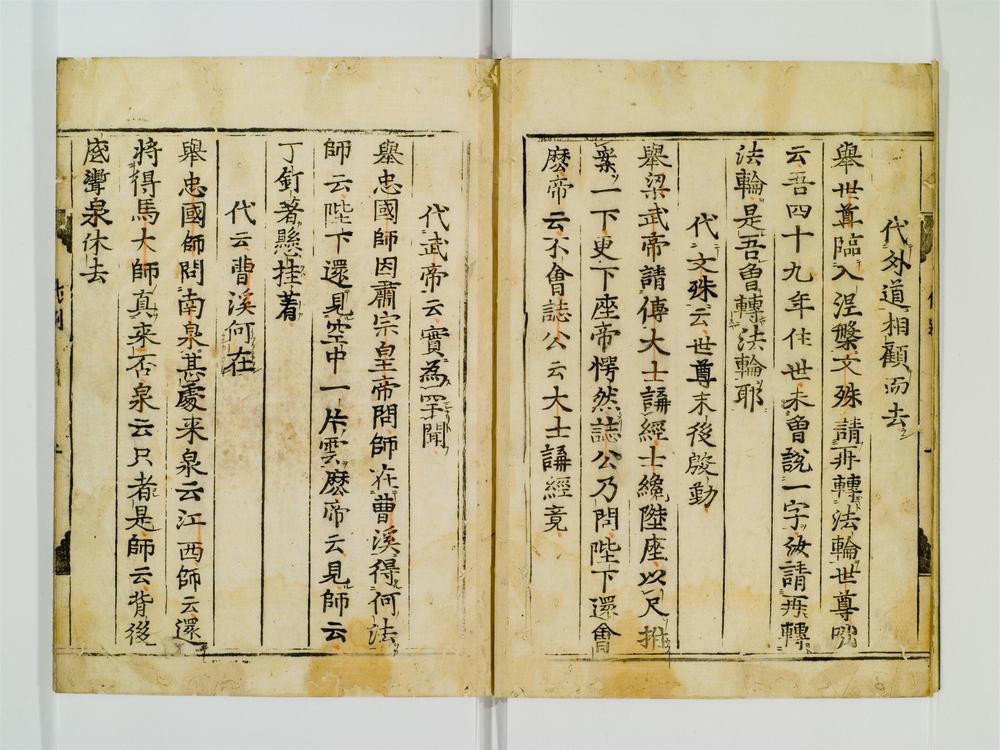 代外道相顧而去
舉世尊臨入涅槃文殊請再轉法輪世尊咄
云吾四十九年住世未曾說一字汝請再轉
法輪是吾曾轉法輪耶
代文殊云世尊末後慇勤
舉梁武帝請傅大士講經士纔陞座以尺揮
案一下更下座帝愕然誌公乃問陛下還會
麽帝云不會誌公云大士講經竟
代武帝云實為罕聞
舉忠國師因肅宗皇帝問師在曹溪得何法
師云陛下還見空中一片雲麽帝云見師云
丁釘著懸挂著
代云曹溪何在
舉忠國師問南泉甚處来泉云江西師云還
將得馬大師真来否泉云只者是師云背後
底聻泉休去